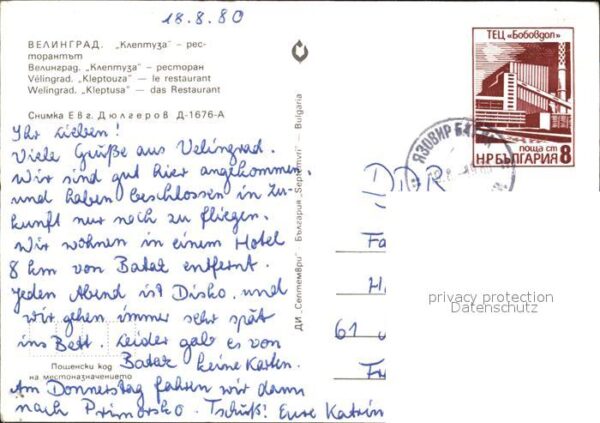 18.8.80
ВЕЛИНГРАД. „Клептуза" – рес-
торантът
Велинград. „Клептуза" – ресторан
Vélingrad. „Kleptouza" – le restaurant
Welingrad. „Kleptusa" – das Restaurant
Снимка Евг. Дюлгеров Д-1676-А
Ihr Lieben!
Viele Grüße aus Velingrad.
Wir sind gut hier angekommen
und haben beschlossen in Zu-
kunft nur noch zu fliegen.
Wir wohnen in einem Hotel
8 km von Batak entfernt.
Jeden Abend ist Disko und
wir gehen immer sehr spät
ins Bett. Leider gab es von
Batak keine Karten.
Am Donnerstag fahren wir dann
nach Primorsko. Tschüß! Eure Katrin
Пощенски код
на местоназначението
ДИ „Септември" България „Septemvri" – Bulgaria
ТЕЦ «Бобовдол»
поща ст
НРБЪЛГАРИЯ 8
ЯЗОВИР
DDR
Fa
H
61
F
privacy protection
Datenschutz